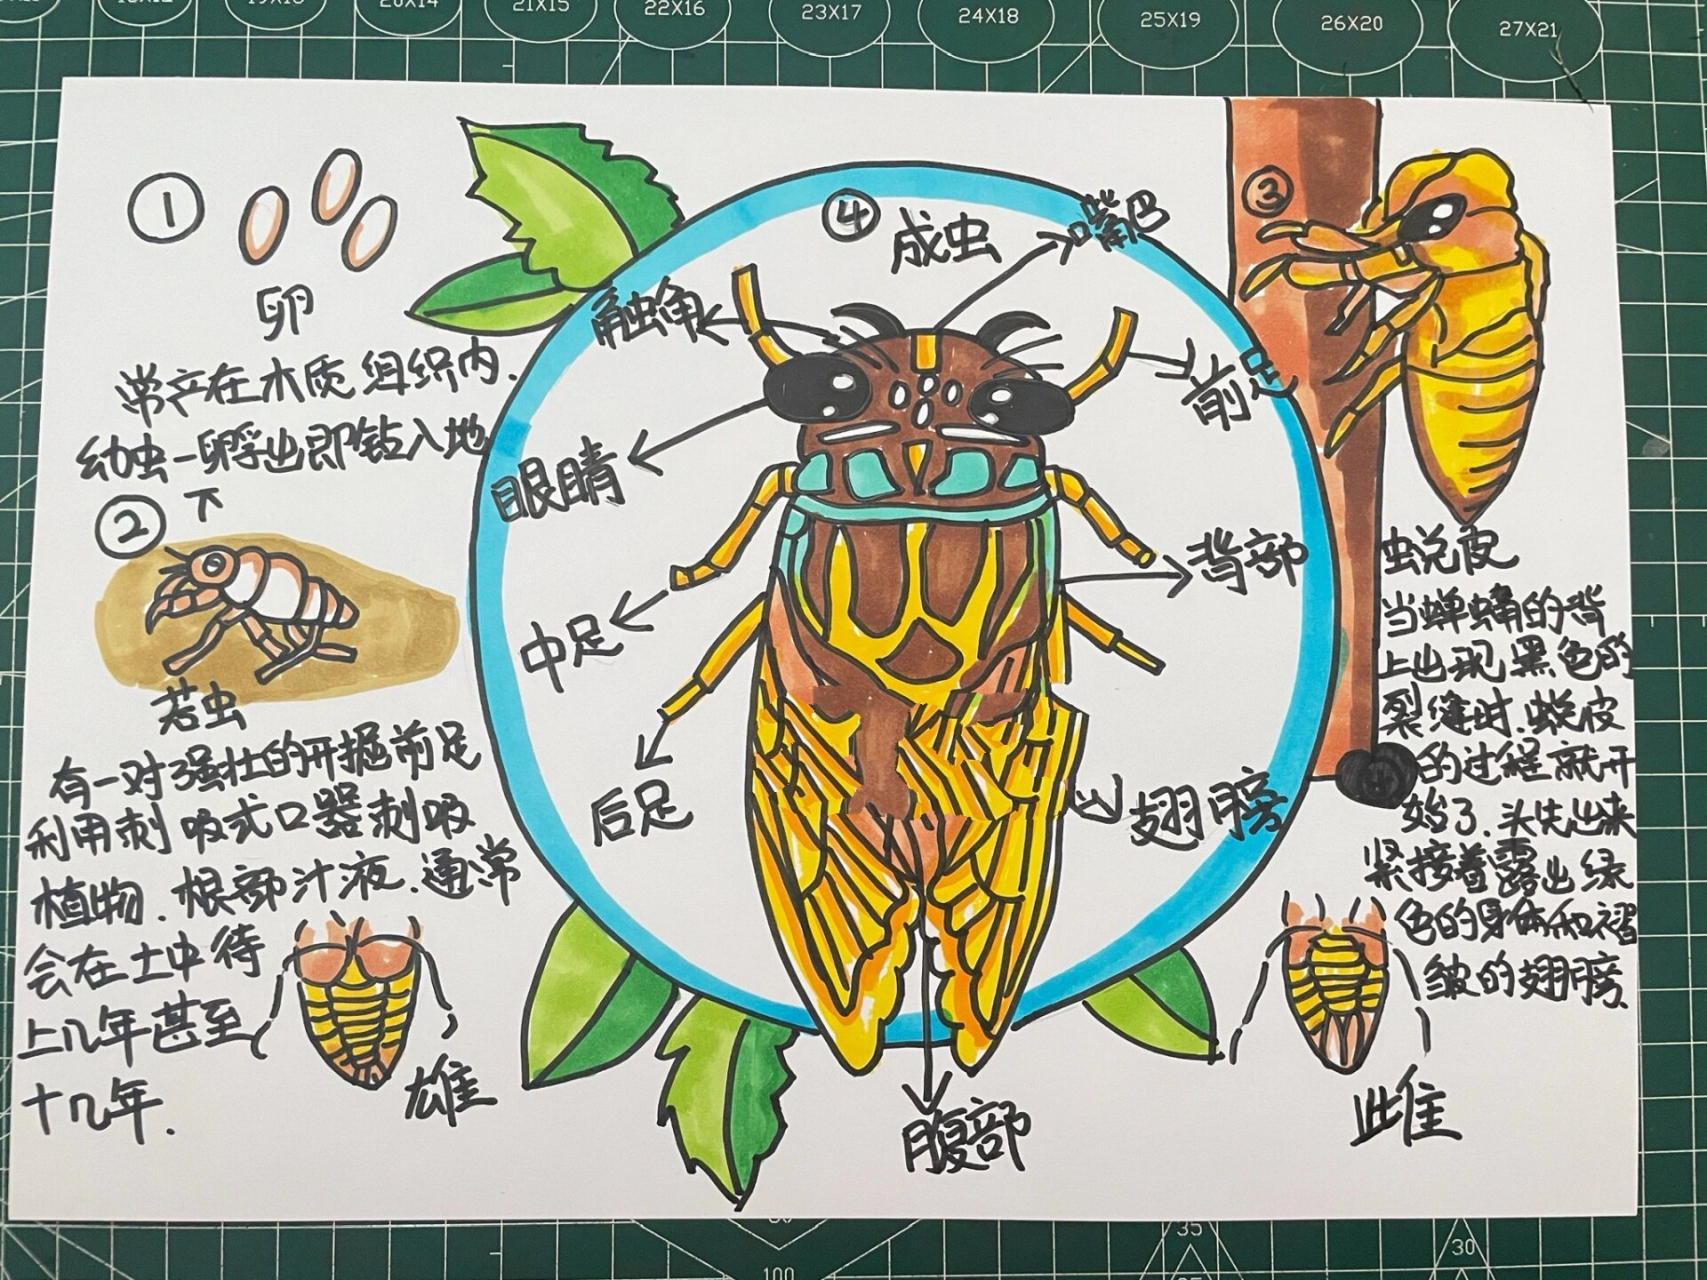 21X15
22X16
23X17
24X18
25X19
26X20
27X21
1
卵
常产在木质组织内.
幼虫一孵出即钻入地
下
2
若虫
有一对强壮的开掘前足
利用刺吸式口器刺吸
植物.根部汁液.通常
会在土中待
上几年甚至
十几年.
雄
4
成虫
嘴巴
触角
前足
眼睛
背部
中足
后足
翅膀
腹部
3
虫蜕皮
当蝉蛹的背
上出现黑色的
裂缝时.蜕皮
的过程就开
始了.头先出来
紧接着露出绿
色的身体和褶
皱的翅膀.
雌
35
30
100